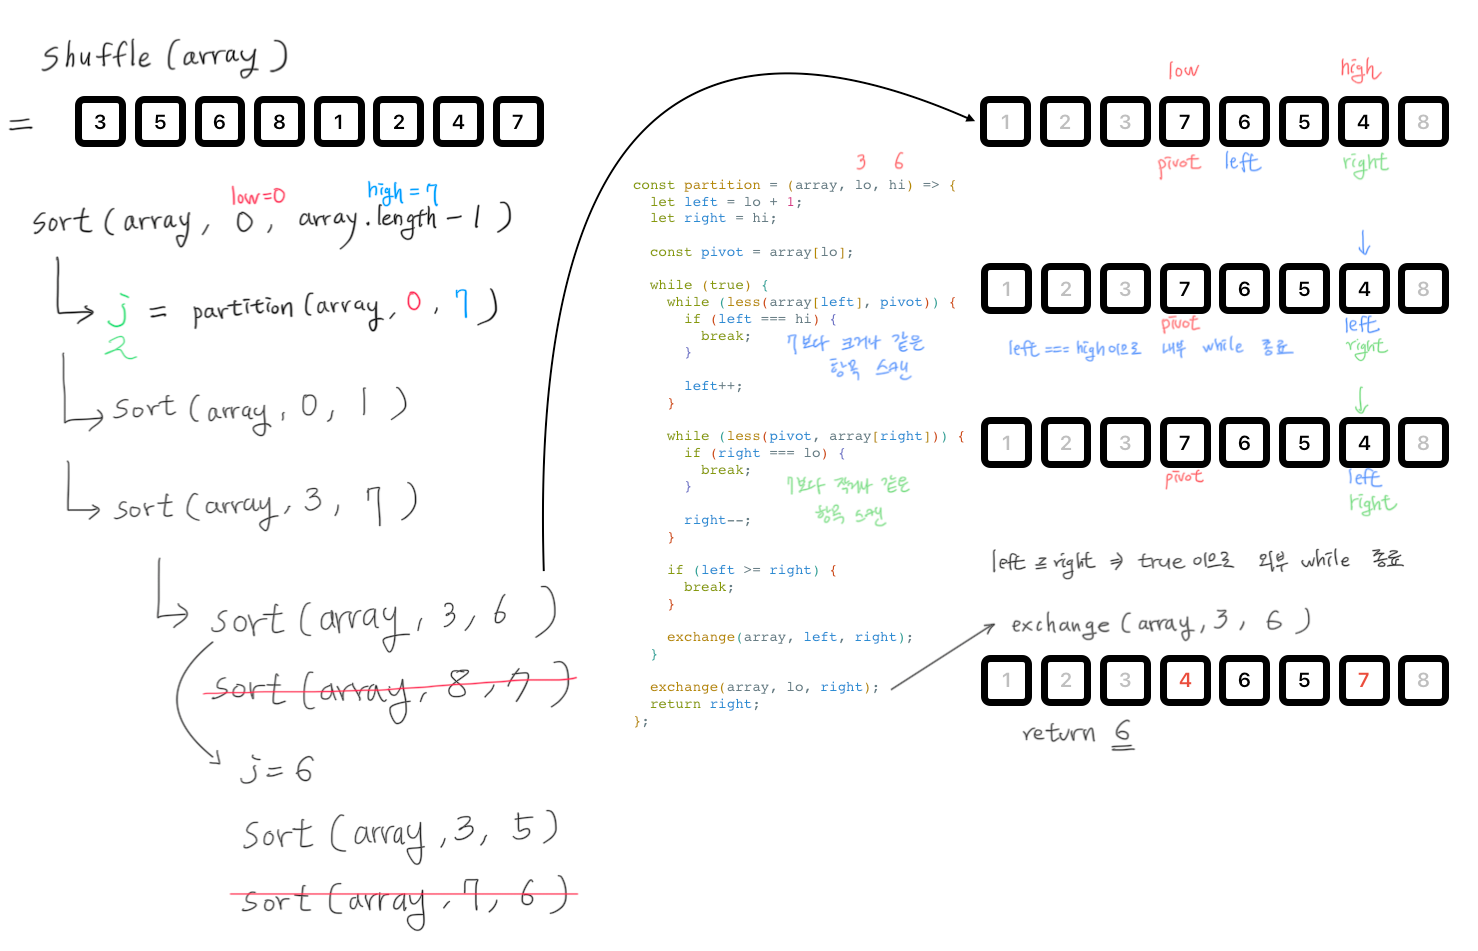 shuffle (array)
= 3 5 6 8 1 2 4 7
low=0 high=7
sort (array, 0, array.length-1)
j = partition(array, 0, 7)
2
sort (array, 0, 1)
sort (array, 3, 7)
sort (array, 3, 6)
sort (array, 8, 7)
j = 6
sort (array, 3, 5)
sort (array, 7, 6)
3 6
const partition = (array, lo, hi) => {
let left = lo + 1;
let right = hi;
const pivot = array[lo];
while (true) {
while (less(array[left], pivot)) {
if (left === hi) {
break;
}
7보다 크거나 같은
항목 스캔
left++;
}
while (less(pivot, array[right])) {
if (right === lo) {
break;
}
7보다 작거나 같은
항목 스캔
right--;
}
if (left >= right) {
break;
}
exchange(array, left, right);
}
exchange(array, lo, right);
return right;
};
low high
1 2 3 7 6 5 4 8
pivot left right
1 2 3 7 6 5 4 8
pivot left
left === high이므로 내부 while 종료 right
1 2 3 7 6 5 4 8
pivot left
right
left ≥ right ⇒ true 이므로 외부 while 종료
exchange (array, 3, 6)
1 2 3 4 6 5 7 8
return 6